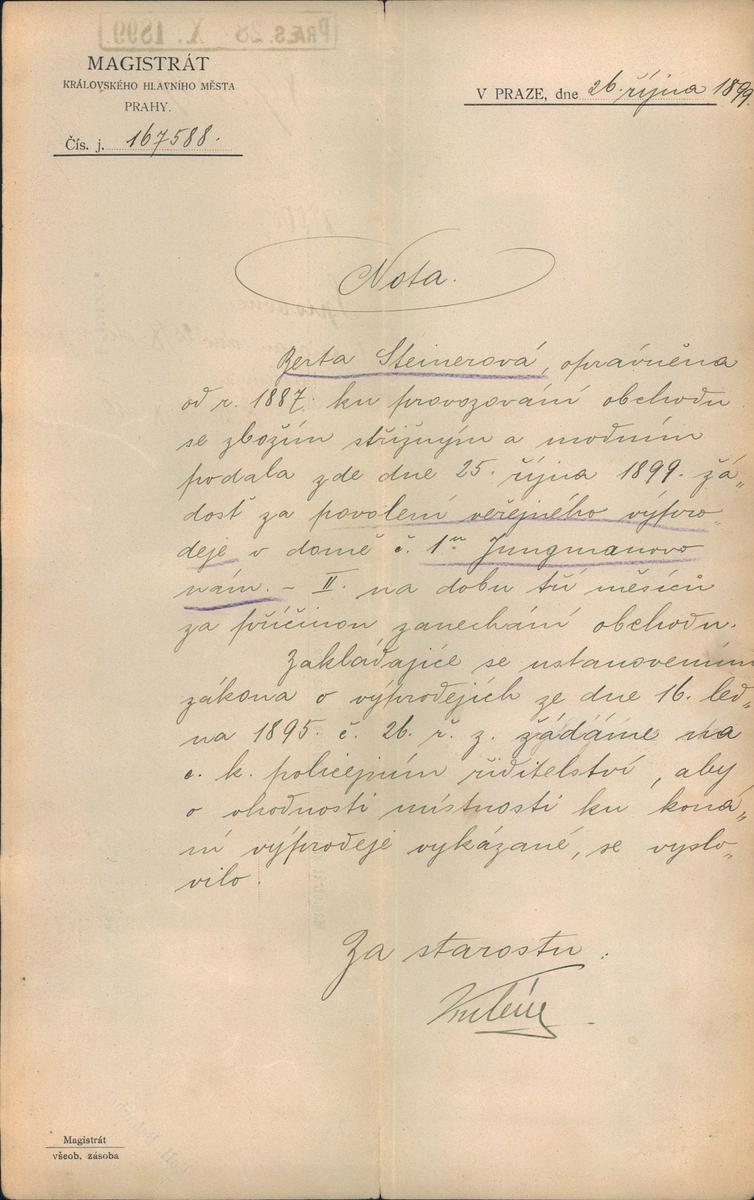 PRÆS. 28 X. 1899
MAGISTRÁT
KRÁLOVSKÉHO HLAVNÍHO MĚSTA
PRAHY.
Čís. j. 167588.
V PRAZE, dne 26. října 1899.
Nota.
Berta Steinerová, oprávněna
od r. 1887. ku provozování obchodu
se zbožím střižným a modním
podala zde dne 25. října 1899. žá„
dosť za povolení veřejného výpro„
deje v domě č. 1n Jungmanovo
nám. – II. na dobu tří měsíců
za příčinou zanechání obchodu.
Zakládajíce se ustanovením
zákona o výprodejích ze dne 16. led„
na 1895. č. 26. ř. z. žádáme
c. k. policejním ředitelství, aby
o vhodnosti místnosti ku koná„
ní výprodeje vykázané, se vyslo„
vilo.
Za starostu:
Magistrát
všeob. zásoba